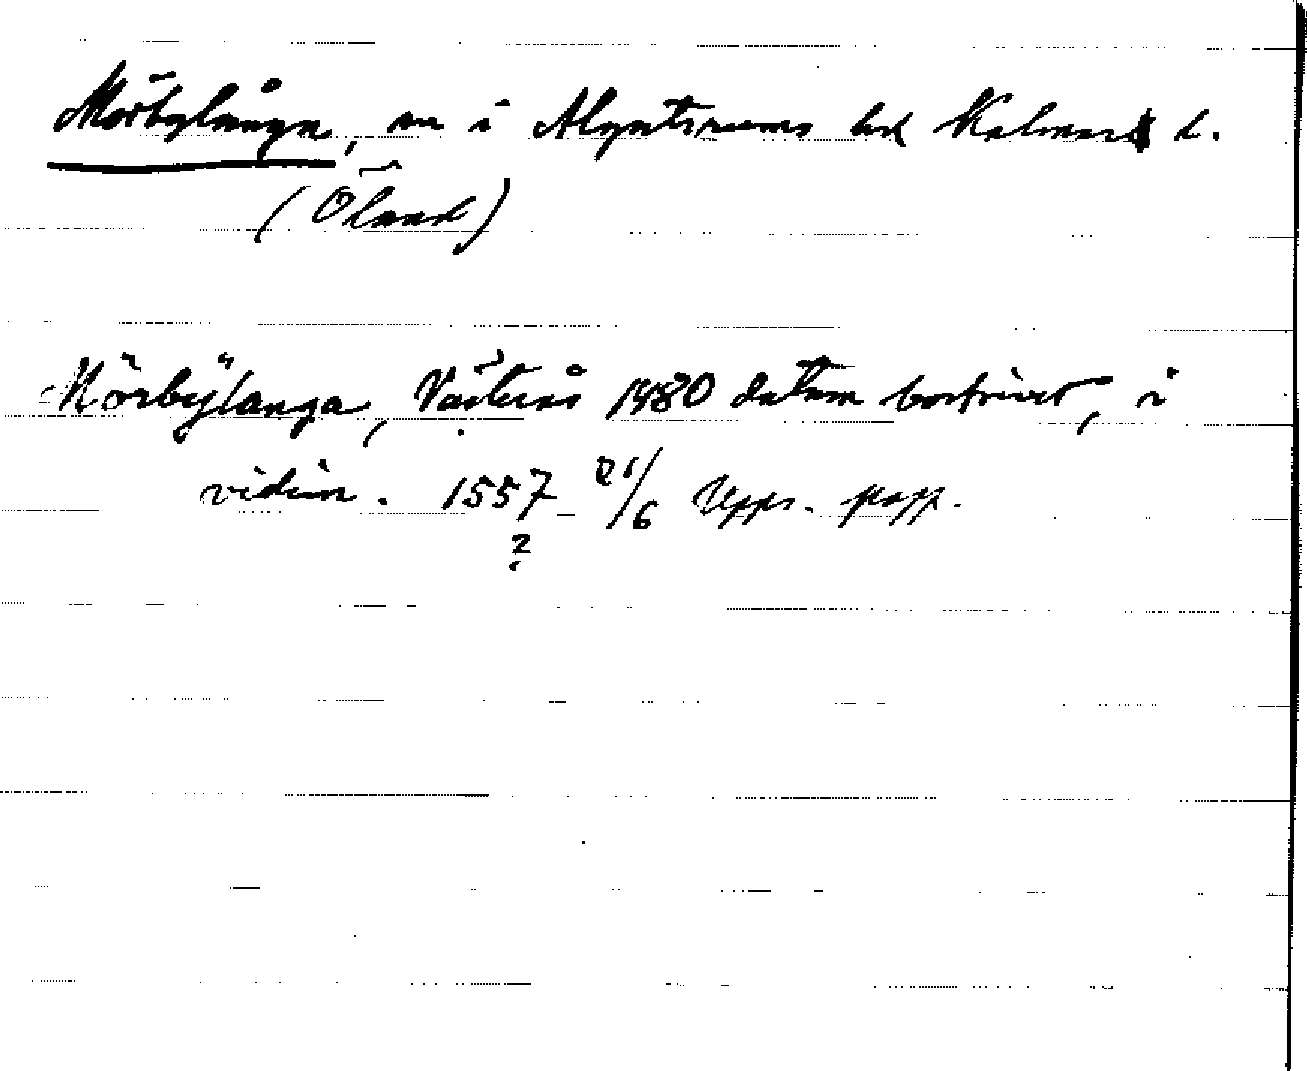 Mörbylånga, sn i Algutsrums hd Kalmar l.
(Öland)
Mörbylanga, Västerås 1480 datum bortrivet, i
vidim. 1557 21/6 Upps. papp.
?